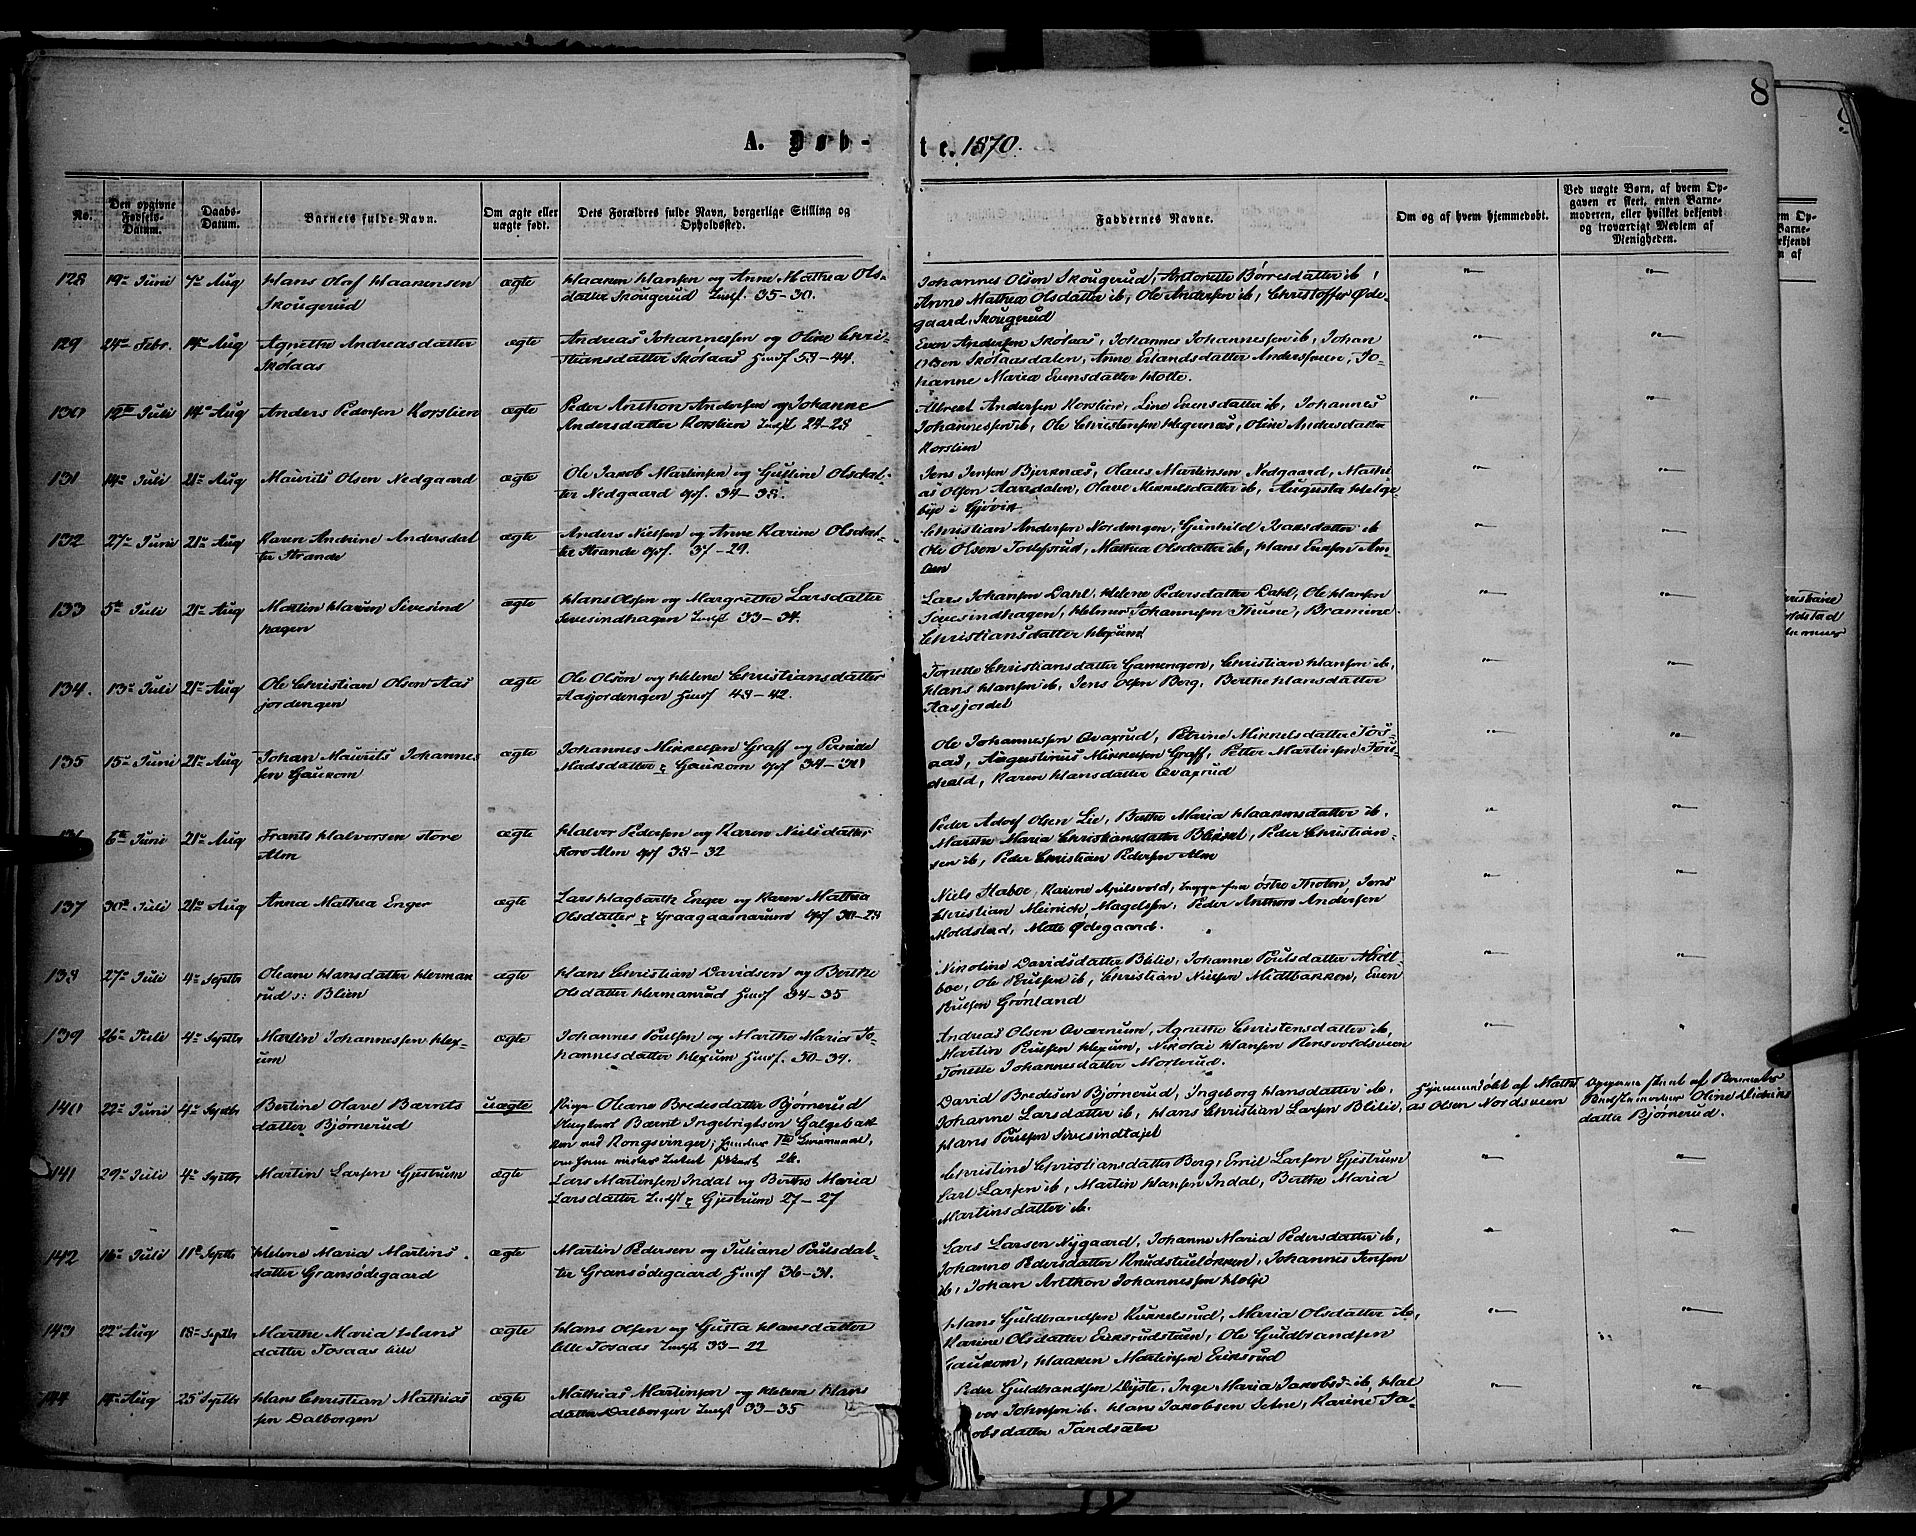 8
A. Døb-
te. 1870.
No.
Den opgivne Fødsels-Datum.
Daabs-Datum.
Barnets fulde Navn.
Om ægte eller uægte født.
Dets Forældres fulde Navn, borgerlige Stilling og Opholdssted.
Faddernes Navne.
Om og af hvem hjemmedøbt.
Ved uægte Børn, af hvem Op-
gaven er skeet, enten Barne-
moderen, eller hvilket bekjendt
og troværdigt Medlem af
Menigheden.
128 19de Juni 7de Aug Hans Olaf Haakensen ægte Haaken Hansen og Anne Mathea Ols-
Skougerud datter Skougerud 35-30.
Johannes Olsen Skougerud, Antonette Børresdatter ib,
Anne Mathea Olsdatter ib, Ole Andersen ib, Christoffer Øde-
gaard, Skougerud
129 24de Febr. 14de Aug Agnethe Andreasdatter ægte Andreas Johannessen og Oline Chri-
Skølaas stiansdatter Skølaas Husf 53-44.
Even Andersen Skølaas, Johannes Johannessen ib, Johan
Olsen Skølaasdalen, Anne Erlandsdatter, Jo-
hanne Maria Evensdatter Holte.
130 12te Juli 14de Aug Anders Pedersen Korslien ægte Peder Anthon Andersen og Johanne
Andersdatter Korslien 24-28
Albret Andersen Korslien, Line Evensdatter ib, Johannes
Johannessen ib, Ole Christensen Hegernæs, Oline Andersdatter
Korslien
131 14de Juli 21de Aug Maurits Olsen Nedgaard ægte Ole Jakob Martinsen og Gustine Olsdat-
ter Nedgaard 34-38.
Jens Jensen Bjerknæs, Olaus Martinsen Nedgaard, Mathi-
as Olsen Aarsdalen, Olave Mikkelsdatter ib, Augusta Helge
bye i Gjøvik
132 27de Juni 21de Aug Karen Andrine Andersdat ægte Anders Nielsen og Anne Karine Olsdat-
ter Strande ter Strande 37-29.
Christian Andersen Nordengen, Gunhild Isaksdatter ib
Ole Olsen Tollefsrud, Mathea Olsdatter ib, Hans Eriksen Am-
lien
133 5te Juli 21de Aug Martin Hansen Sivesind ægte Hans Olsen og Margrethe Larsdatter
hagen Sivesindhagen 33-34.
Lars Johansen Dahl, Helene Pedersdatter Dahl, Ole Hansen
Sivesindhagen, Helmer Johannesen Thune, Bramine
Christiansdatter Hexum
134. 13de Juli 21de Aug Ole Christian Olsen Aas ægte Ole Olsen og Helene Christiansdatter
jordengen Aasjordengen Husf 48-42.
Tonette Christiansdatter Gamengen, Christian Hansen ib,
Hans Hansen ib, Jens Olsen Berg, Berthe Hansdatter
Aasjordet
135 15de Juni 21de Aug Johan Maurits Johannes ægte Johannes Mikkelsen Graff og Pernille
sen Gaukom Madsdatter Gaukom 34-30
Ole Johannessen Qvaxrud, Petrine Mikkelsdatter Tos-
aas, Augustinus Mikkelsen Graff, Petter Martinsen
Karen Hansdatter Qvaxrud
6te Juni 21de Aug Frants Halvorsen store ægte Halvor Pedersen og Karen Nielsdatter
Alm store Alm 38-32
Peder Adolf Olsen Lie, Berthe Maria Haakensdatter ib,
Marthe Maria Christiansdatter Blilie, Peder Christian-
sen ib, Peder Christian Pedersen Alm
137 30te Juli 21de Aug Anna Mathea Enger ægte Lars Hagbarth Enger og Karen Mathea
Olsdatter Graagaasmarum 30-28
Niels Staboe, Karine Apilsvold, begge fra østre Thoten, Jens
Christian Meinich Magelssen, Peder Anthon Andersen
Moldstad, Mate Ødegaard.
138 27de Juli 4de Septbr Oleane Hansdatter Herman ægte Hans Christian Davidsen og Berthe
rud s: Blien Olsdatter Hermanrud Husf 34-35
Nikoline Davidsdatter Blilie, Johanne Poulsdatter Midt-
boe, Ole Poulsen ib, Christian Nielsen Midtbakken, Even
Poulsen Grønland
139 26de Juli 4de Septbr Martin Johannessen Hex- ægte Johannes Poulsen og Marthe Maria Jo-
um hannesdatter Hexum Husf. 30-39.
Andreas Olsen Qværnum, Agnethe Christensdatter ib,
Martin Poulsen Hexum, Nikolai Hansen Rensvoldsveen
Tonette Johannesdatter Morterud.
140 22de Juni 4de Septbr Bertine Olave Bærnts uægte Pige Oleane Bredesdatter Bjørnerud
datter Bjørnerud Ungkarl Bærnt Ingebrigtsen Galgebak
ken ved Kongsvinger;
David Bredesen Bjørnerud, Ingeborg Hansdatter ib,
Johanne Larsdatter ib, Hans Christian Larsen Blilie,
Hans Poulsen Sivesindtajet
Hjemmedøbt af Mathi
as Olsen Nordsveen
Opgaven skeet af Barnets
Bedstemoder Oline
datter Bjørnerud.
141 29de Juli 4de Septbr Martin Larsen Gjestrum ægte Lars Martinsen Indal og Berthe Maria
Larsdatter Gjestrum 27-27
Christine Christiansdatter Berg, Emil Larsen Gjestrum
Carl Larsen ib, Martin Hansen Indal, Berthe Maria
Martinsdatter ib.
142 16de Juli 11te Septbr Helene Maria Martins ægte Martin Pedersen og Juliane Poulsdat-
datter Gransødegaard ter Gransødegaard Husf 36-31.
Lars Larsen Nygaard, Johanne Maria Pedersdatter ib,
Johanne Pedersdatter Knudstueløkken, Johannes Jensen
ib, Johan Anthon Johannessen Helje
143 22de Aug 18de Septbr Marthe Maria Hans ægte Hans Olsen og Gusta Hansdatter
datter Tosaas lille lille Tosaas 33-22
Hans Guldbrandsen Kukkelsrud, Maria Olsdatter ib,
Karine Olsdatter Eriksrudstuen, Ole Guldbrandsen
Gaukom, Haaken Martinsen Eriksrud
144 14de Aug 25de Septbr Hans Christian Mathias ægte Mathias Martinsen og Helene Hans
sen Dalborgen datter Dalborgen 33-35
Peder Guldbrandsen Dyste, Inge Maria Jakobsd. ib, Hal
vor Johnsen ib. Hans Jakobsen Selne, Karine Ja-
kobsdatter Tandsæter